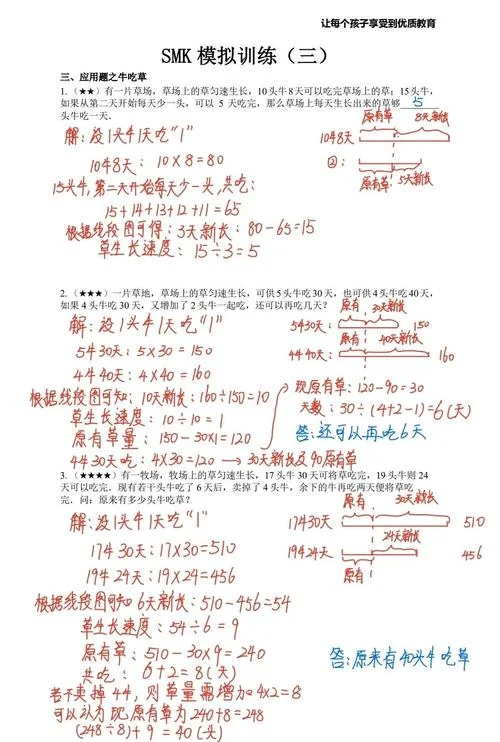 让每个孩子享受到优质教育
SMK 模拟训练（三）
三、应用题之牛吃草
1.（★★）有一片草场，草场上的草匀速生长，10头牛8天可以吃完草场上的草；15头牛，
如果从第二天开始每天少一头，可以 5 天吃完，那么草场上每天生长出来的草够 5
头牛吃一天．
解：设1头牛1天吃"1"
10牛8天：10×8=80
15头牛，第二天开始每天少一头，共吃：
15+14+13+12+11=65
根据线段图可得：3天新长：80-65=15
草生长速度：15÷3=5
原有草 8天新长
10牛8天
②：
原有草 5天新长
2.（★★★）一片草地，草场上的草匀速生长，可供5头牛吃30天，也可供4头牛吃40天，
如果4头牛吃30天，又增加了2头牛一起吃，还可以再吃几天？
解：设1头牛1天吃"1"
5牛30天：5×30=150
4牛40天：4×40=160
根据线段图可知：10天新长：160÷150=10
草生长速度：10÷10=1
原有草量：150-30×1=120
4牛30天吃：4×30=120→30天新长及90原有草
原有 30天新长
5牛30天 150
原有 40天新长
4牛40天 160
现原有草：120-90=30
天数：30÷(4+2-1)=6(天)
答：还可以再吃6天
3.（★★★★）有一牧场，牧场上的草匀速生长，17头牛30天可将草吃完，19头牛则24
天可以吃完．现有若干头牛吃了6天后，卖掉了4头牛，余下的牛再吃两天便将草吃
完．问：原来有多少头牛吃草？
解：设1头牛1天吃"1"
17牛30天：17×30=510
19牛24天：19×24=456
根据线段图可知 6天新长：510-456=54
草生长速度：54÷6=9
原有草：510-30×9=240
共吃：6+2=8(天)
若不卖掉4牛，则草量需增加4×2=8
可以认为现原有草为240+8=248
(248÷8)+9=40(头)
原有 30天新长
17牛30天 510
24天新长
19牛24天 456
原有
答：原来有40头牛吃草